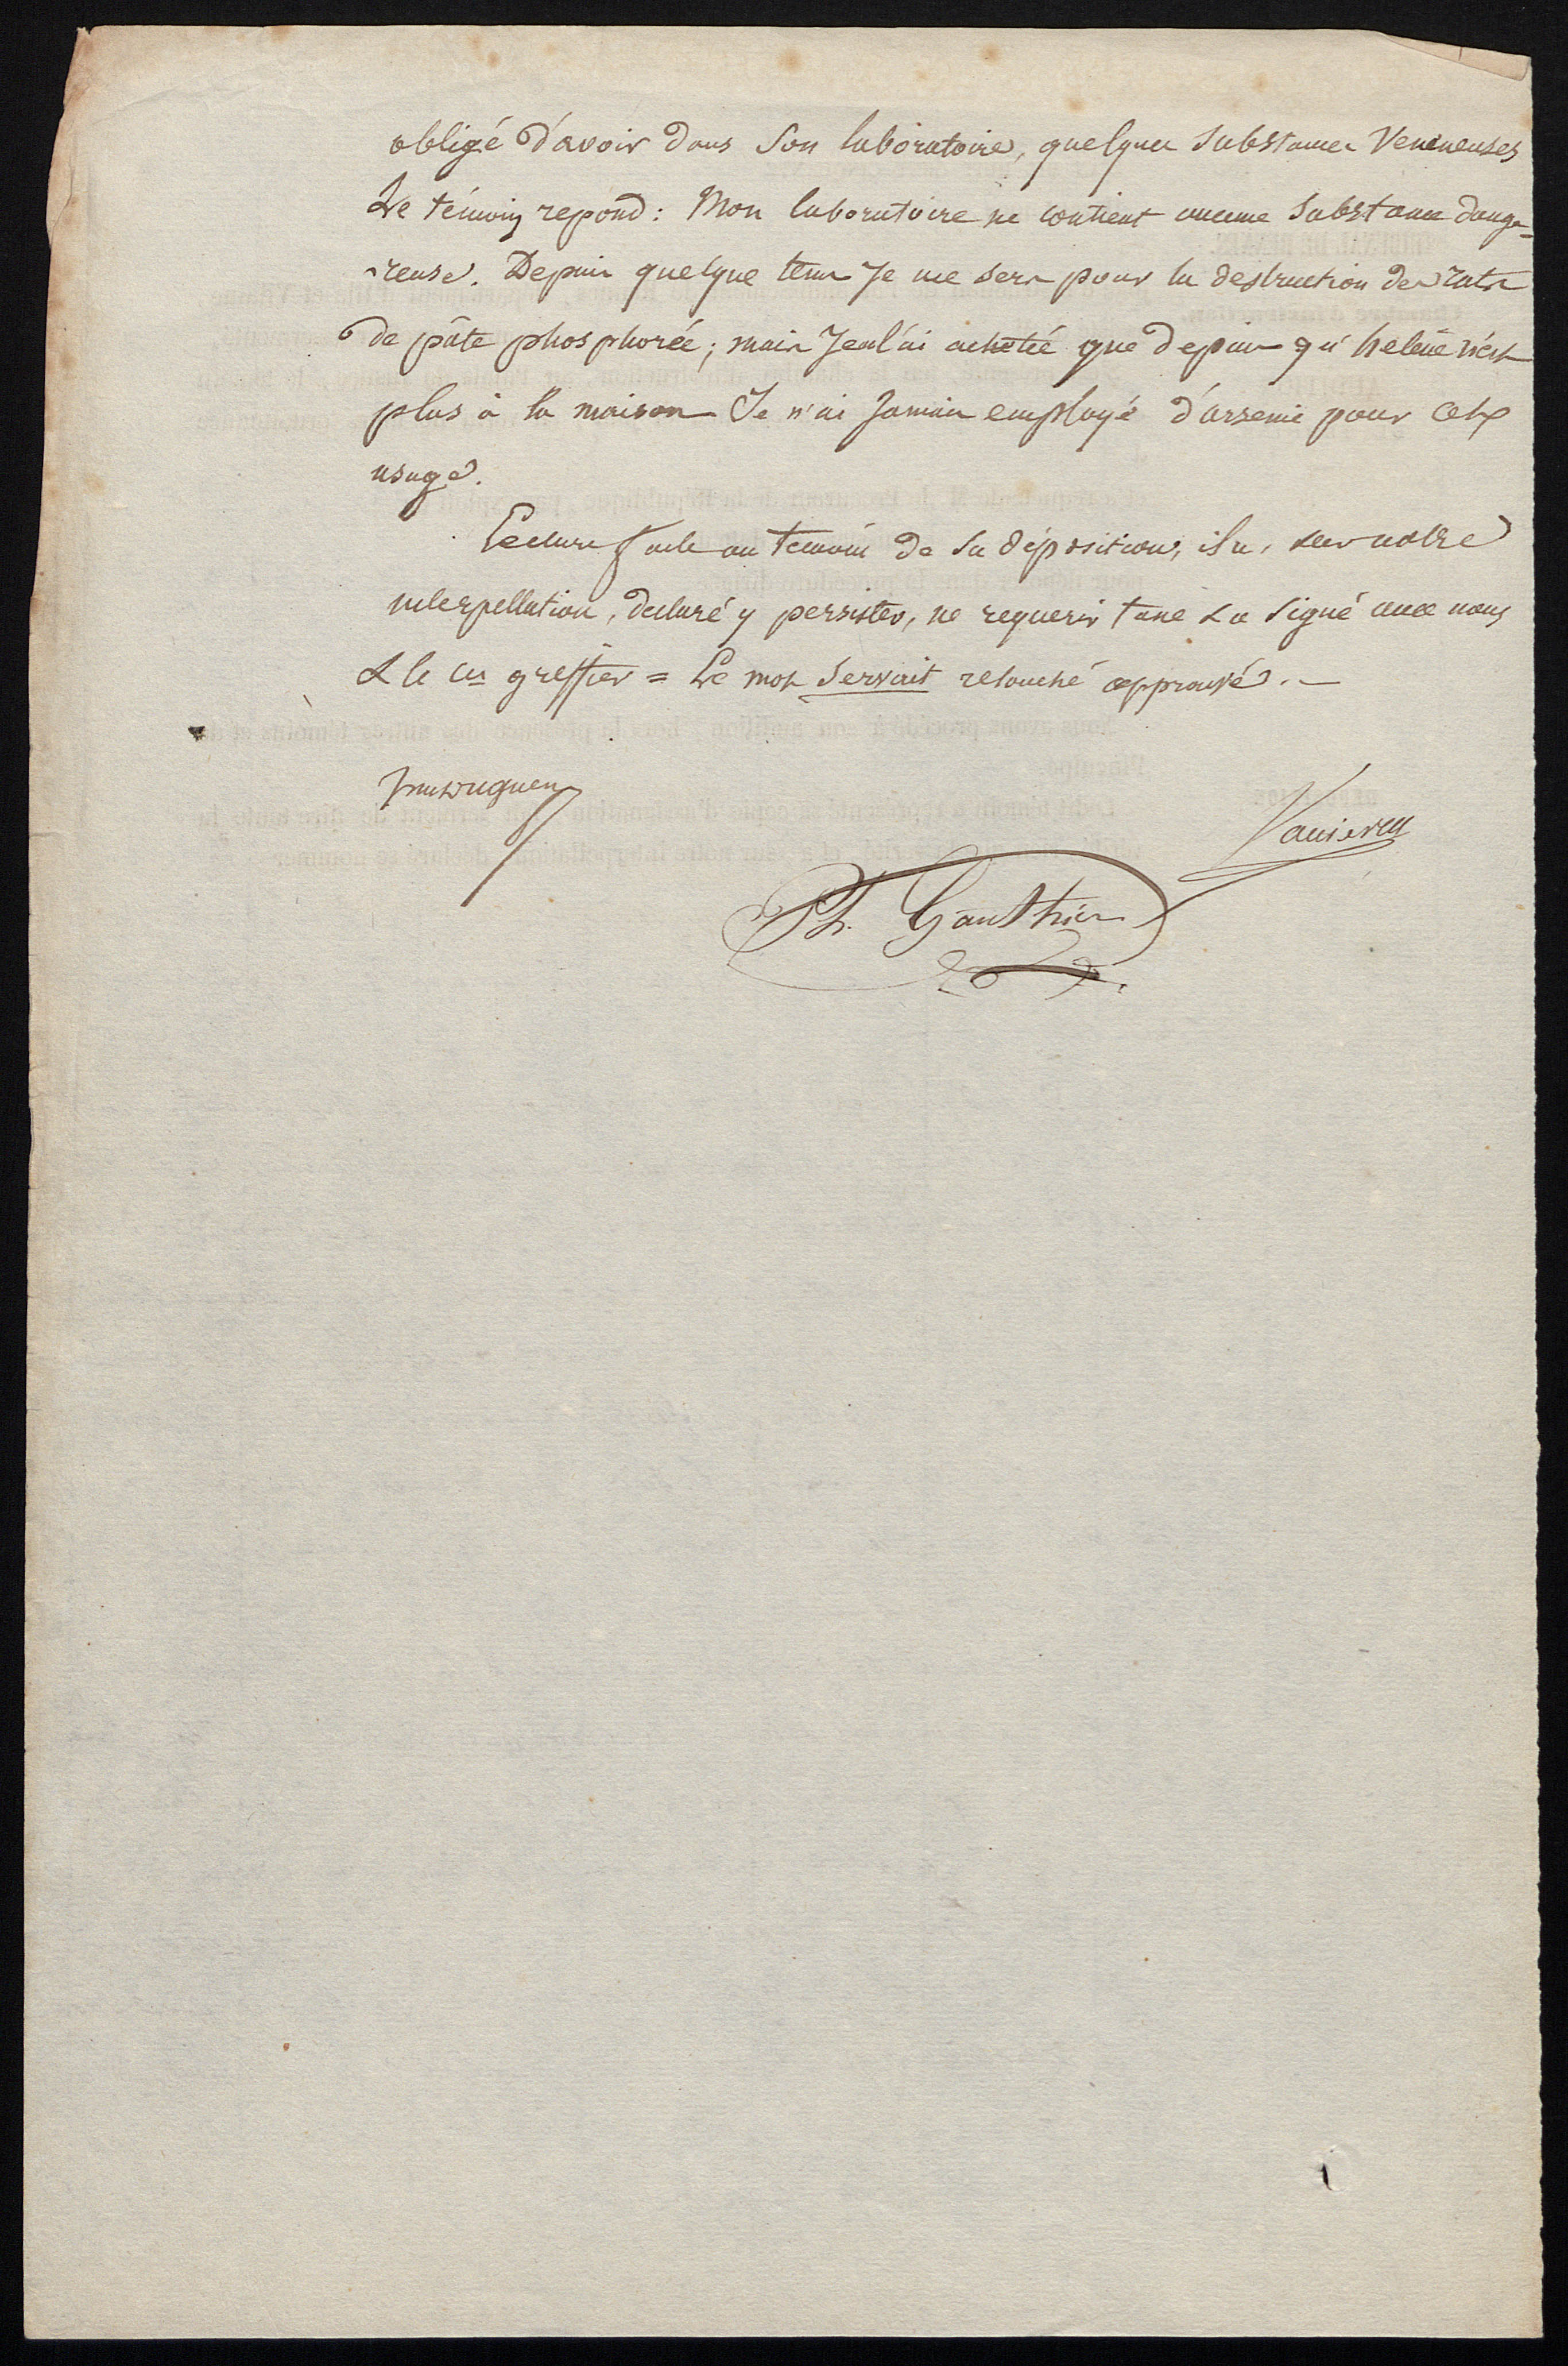 obligé d'avoir dans son laboratoire, quelques substances veneneuses
Le témoin repond : Mon laboratoire ne contient aucune substance dange-
-reuse. Depuis quelque tems Je me sers pour la destruction des rats
de pâte phosphorée ; mais Je n'ai acheté que depuis qu'helène n'est
plus à la maison Je n'ai Jamais employé d'arsenic pour cet
usage.
Lecture faite au temoin de sa déposition, il a, sur notre
interpellation, declaré y persister, ne requerir taxe & a signé avec nous
& le cis greffier = Le mot servait retouché approuvé. —
Vannier
Th. Gauthier